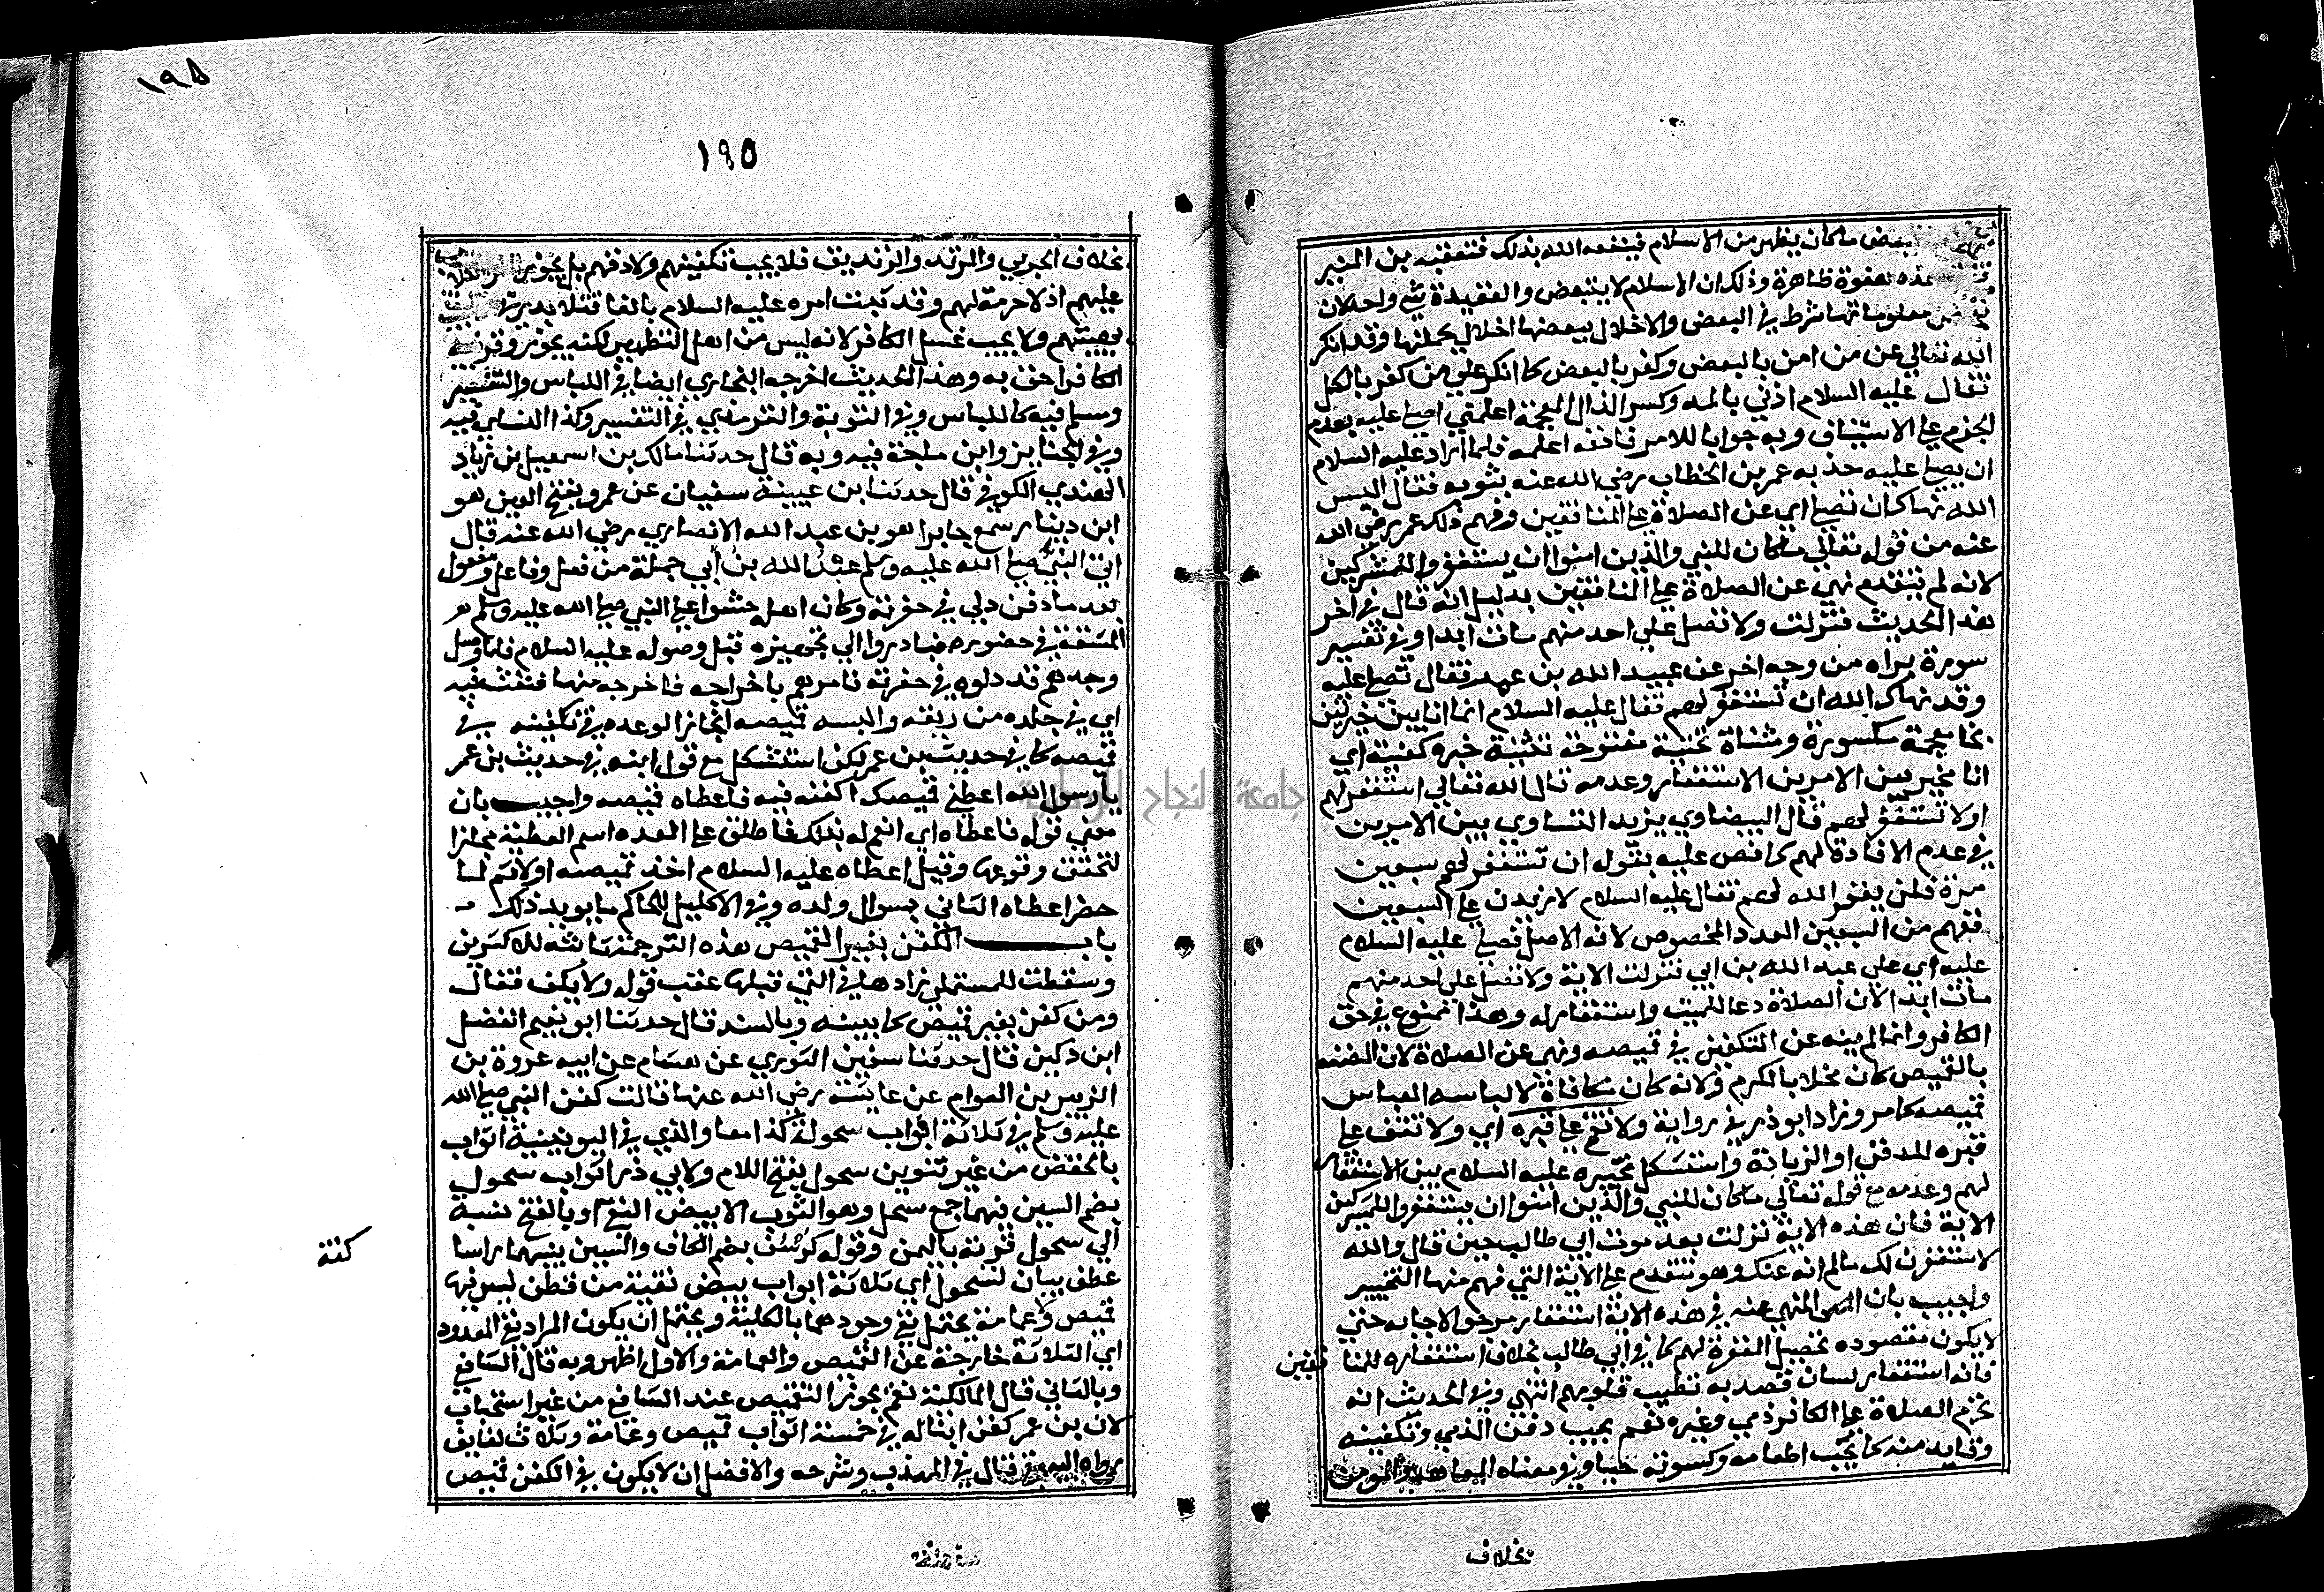 بعض ما كان يظهر من الاسلام فينفعه الله بذلك فتعقبه بن المنير
هذه هفوة ظاهرة وذلك ان الاسلام لا يتبعض والعقيدة شي واحد لان
بعض معلوماتها شرط في البعض والاخلال ببعضها اخلال بجملتها وقد انكر
الله تعالي عن من امن بالبعض وكفر بالبعض كما انكر علي من كفر بالكل
فقال عليه السلام اذني بالمد وكسر الذال المعجمة اعلمني اصلي عليه بعدم
الجزم علي الاستيناف وبه جوابا للامر فاذنه اعلمه فلما اراد عليه السلام
ان يصلي عليه جذبه عمر بن الخطاب رضي الله عنه بثوبه فقال اليس
الله نهاك ان تصلي اي عن الصلاة علي المنافقين وفهم ذلك عمر رضي الله
عنه من قوله تعالي ما كان للنبي والذين امنوا ان يستغفروا للمشركين
لانه لم يتقدم نهي عن الصلاة علي المنافقين بدليل انه قال في اخر
هذا الحديث فنزلت ولا تصل علي احد منهم مات ابدا وفي تفسير
سورة براه من وجه اخر عن عبيد الله بن عمر فقال تصلي عليه
وقد نهاك الله ان تستغفر لهم فقال عليه السلام انما انا بين خيرتين
بخا معجمة مكسورة ومثناة تحتية مفتوحة تثنية خيرة كعنبة اي
انا مخير بين الامرين الاستغفار وعدمه قال الله تعالي استغفر لهم
او لا تستغفر لهم قال البيضاوي يريد التساوي بين الامرين
في عدم الافادة لهم كما نص عليه بقوله ان تستغفر لهم سبعين
مرة فلن يغفر الله لهم فقال عليه السلام لازيدن علي السبعين
ففهم من السبعين العدد المخصوص لانه الاصل فصلي عليه السلام
عليه اي علي عبد الله بن ابي فنزلت الاية ولا تصل علي احد منهم
مات ابدا لان الصلاة دعا للميت واستغفار له وهذا ممنوع في حق
الكافر وانما لم ينه عن التكفين في قميصه ونهي عن الصلاة لان الضنه
بالقميص كان مخلا بالكرم ولانه كان مكافاة لالباسه العباس
قميصه كما مر وزاد ابو ذر في رواية ولا تقم علي قبره اي ولا تقف علي
قبره للدفن او الزيارة واستشكل تخييره عليه السلام بين الاستغفار
لهم وعدمه مع قوله تعالي ما كان للنبي والذين امنوا ان يستغفروا للمشركين
الاية فان هذه الاية نزلت بعد موت ابي طالب حين قال والله
لاستغفرن لك ما لم انه عنك وهو متقدم علي الاية التي فهم منها التخيير
واجيب بان المنهي عنه في هذه الاية استغفار مرجو الاجابه حتي
لا يكون مقصوده تحصيل المغفرة لهم كما في ابي طالب بخلاف استغفاره للمنا فقين
فانه استغفار لسان قصد به تطييب قلوبهم انتهي وفي الحديث انه
تحرم الصلاة علي الكافر ذمي وغيره نعم يجب دفن الذمي وتكفينه
وفا بذمته كما يجب اطعامه وكسوته حيا وفي معناه المعاهد والمومن
بخلاف
١٩٥
١٩٥
بخلاف الحربي والمرتد والزنديق فلا يجب تكفينهم ولا دفنهم بل يجوز
عليهم اذ لا حرمة لهم وقد ثبت امره عليه السلام بالقا قتلا بدر في
بهيئتهم ولا يجب غسل الكافر لانه ليس من اهل التطهير لكنه يجوز وقريبه
الكافر احق به وهذا الحديث اخرجه البخاري ايضا في اللباس والتفسير
ومسلم فيه كاللباس وفي التوبة والترمذي في التفسير وكذا النساي فيه
وفي الجنايز وابن ماجة فيه وبه قال حدثنا مالك بن اسمعيل بن زياد
النهدي الكوفي قال حدثنا بن عيينة سفيان عن عمرو بفتح العين هو
ابن دينار سمع جابرا هو بن عبد الله الانصاري رضي الله عنه قال
اتي النبي صلي الله عليه وسلم عبد الله بن ابي جملة من فعل وفاعل ومفعول
بعد ما دفن دلي في حفرته وكان اهله خشوا علي النبي صلي الله عليه وسلم
المشقة في حضوره فبادروا الي تجهيزه قبل وصوله عليه السلام فلما وصل
وجدهم قد دلوه في حفرته فامرهم باخراجه فاخرجه منها فنفث فيه
اي في جلده من ريقه والبسه قميصه انجازا لوعده في تكفينه في
قميصه كما في حديث بن عمر لكن استشكل مع قول ابنه في حديث بن عمر
يا رسول الله اعطني قميصك اكفنه فيه فاعطاه قميصه واجيب بان
معني قوله فاعطاه اي انعم له بذلك فاطلق علي العده اسم العطية مجازا
لتحقق وقوعها وقيل اعطاه عليه السلام احد قميصه اولا ثم لما
حضر اعطاه الثاني بسوال ولده وفي الاكليل للحاكم ما يويد ذلك
باب الكفن بغير القميص هذه الترجمة ثابتة للاكثرين
وسقطت للمستملي زادها في التي قبلها عقب قوله ولا يكف فقال
ومن كفن بغير قميص كما بينته وبالسند قال حدثنا ابو نعيم الفضل
ابن دكين قال حدثنا سفين الثوري عن هشام عن ابيه عروة بن
الزبير بن العوام عن عايشة رضي الله عنها قالت كفن النبي صلي الله
عليه وسلم في ثلاثة اثواب سحولة كذا معا والذي في اليونينية اثواب
بالخفض من غير تنوين سحول بفتح اللام ولابي ذر اثواب سحول
بضم السين فيهما جمع سحل وهو الثوب الابيض النقي او بالفتح نسبة
الي سحول قرية باليمن وقوله كرسف بضم الكاف والسين بينهما راسا
عطف بيان لسحول اي ثلاثة اثواب بيض نقية من قطن ليس فيها
قميص ولا عمامة يحتمل نفي وجودهما بالكلية ويحتمل ان يكون المراد نفي المعدود
اي الثلاثة خارجة عن القميص والعمامة والاول اظهر وبه قال الشافعي
وبالثاني قال المالكية نعم يجوز التقميص عند الشافعي من غير استحباب
لان بن عمر كفن ابنا له في خمسة اثواب قميص وعمامة وثلاث لفايف
رواه البيهقي قال في المهذب وشرحه والافضل ان لا يكون في الكفن قميص
كفتة